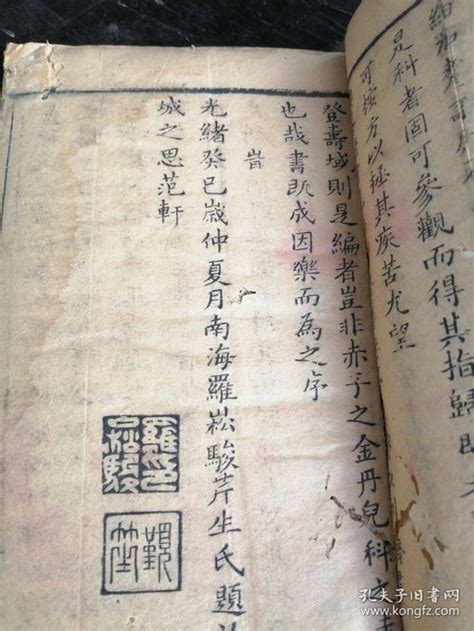 是科者固可參觀而得其指歸即
可按方以拯其疾苦尤望
登壽域則是編者豈非赤子之金丹兒科之
也哉書既成因樂而為之序
旹
光緒癸巳歲仲夏月南海羅崧駿芹生氏題
城之思范軒
羅印崧駿
孔夫子旧书网
www.kongfz.com